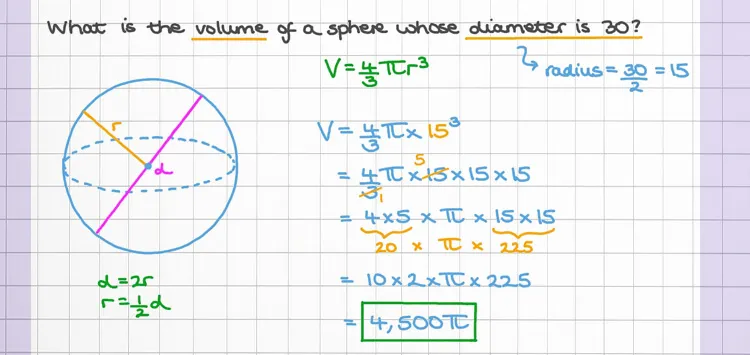 What is the volume of a sphere whose diameter is 30?
radius = 30/2 = 15
V = 4/3 πr³
r
d
d = 2r
r = 1/2 d
V = 4/3 π × 15³
5
= 4/3 π × 15 × 15 × 15
1
= 4 × 5 × π × 15 × 15
20 × π × 225
= 10 × 2 × π × 225
= 4,500π